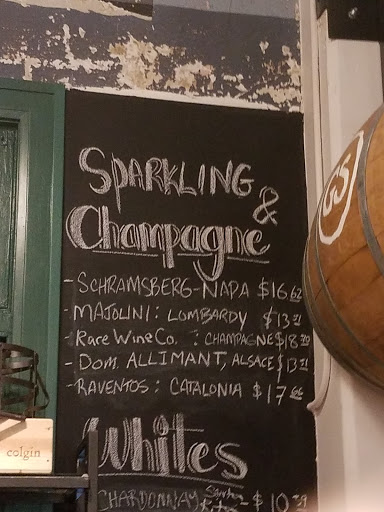 SPARKLING
&
Champagne
-SCHRAMSBERG-NAPA $16 62
-MAJOLINI: LOMBARDY $13 21
-Race Wine Co. : CHAMPAGNE $18
-DOM. ALLIMANT, ALSACE $13 21
-RAVENTOS: CATALONIA $17 66
Whites
CHARDONNAY - $10 39
colgin